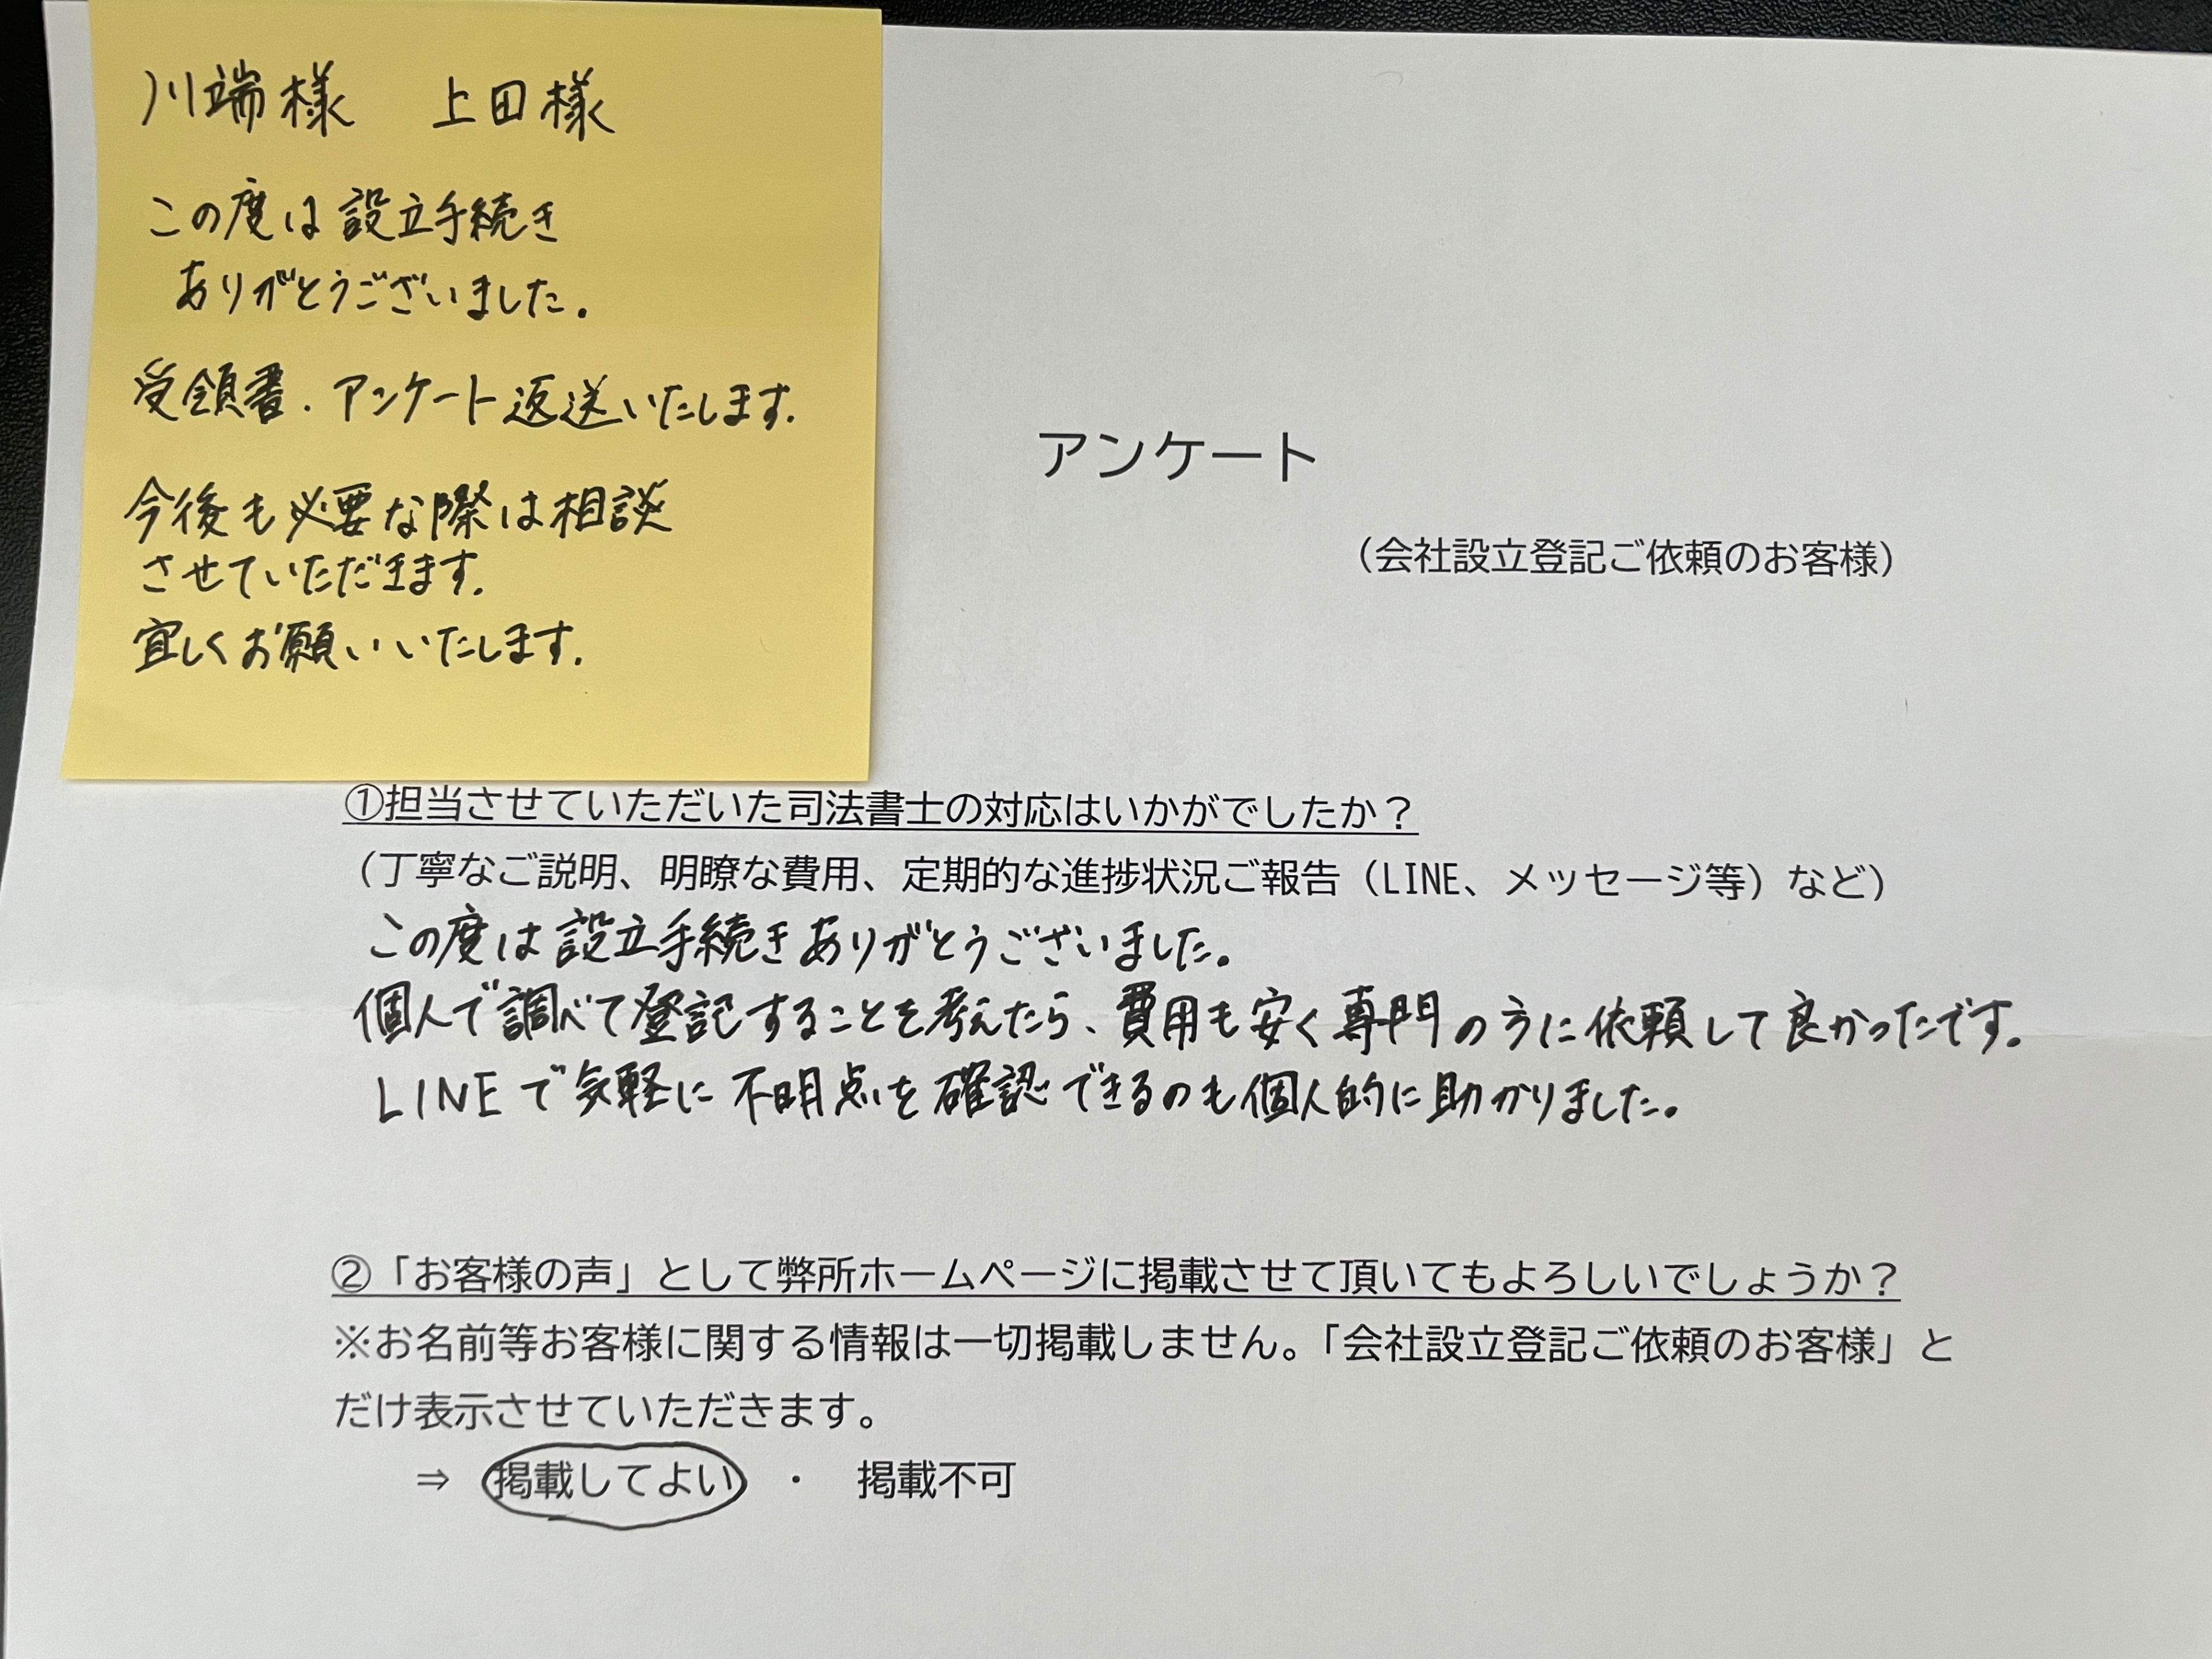 川端様　上田様
この度は設立手続き
ありがとうございました。
受領書・アンケート返送いたします。
今後も必要な際は相談
させていただきます。
宜しくお願いいたします。
アンケート
（会社設立登記ご依頼のお客様）
①担当させていただいた司法書士の対応はいかがでしたか？
（丁寧なご説明、明瞭な費用、定期的な進捗状況ご報告（LINE、メッセージ等）など）
この度は設立手続きありがとうございました。
個人で調べて登記することを考えたら、費用も安く専門の方に依頼して良かったです。
LINEで気軽に不明点を確認できるのも個人的に助かりました。
②「お客様の声」として弊所ホームページに掲載させて頂いてもよろしいでしょうか？
※お名前等お客様に関する情報は一切掲載しません。「会社設立登記ご依頼のお客様」と
だけ表示させていただきます。
⇒　掲載してよい　・　掲載不可